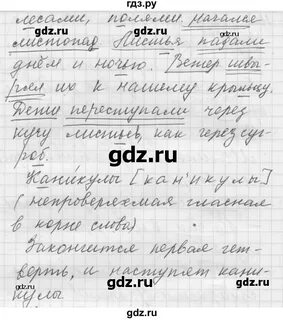 гдз.ру
лесами, полями начался
листопад. Листья падали
днём и ночью. Ветер швы-
рял их к нашему крыльцу.
Дети переступали через
кучу листьев, как через суг-
роб.
Каникулы [кан'икулы]
(непроверяемая гласная
в корне слова)
Закончится первая чет-
верть, и наступят кани-
кулы.
gdz.ru